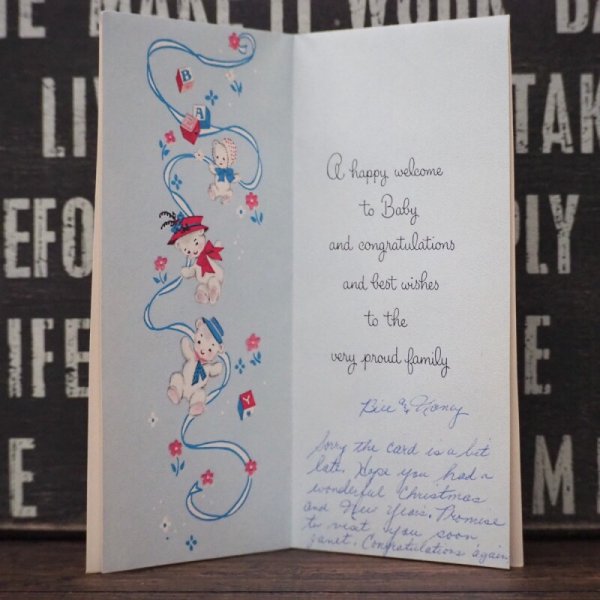 E MAKE IT WORK DA
LI
TAK
EFO
PLY
IFE
E
E
M
B
A
Y
A happy welcome
to Baby
and congratulations
and best wishes
to the
very proud family
Bill & Nancy
Sorry the card is a bit
late. Hope you had a
wonderful Christmas
and New Years. Promise
to visit you soon
Janet. Congratulations again